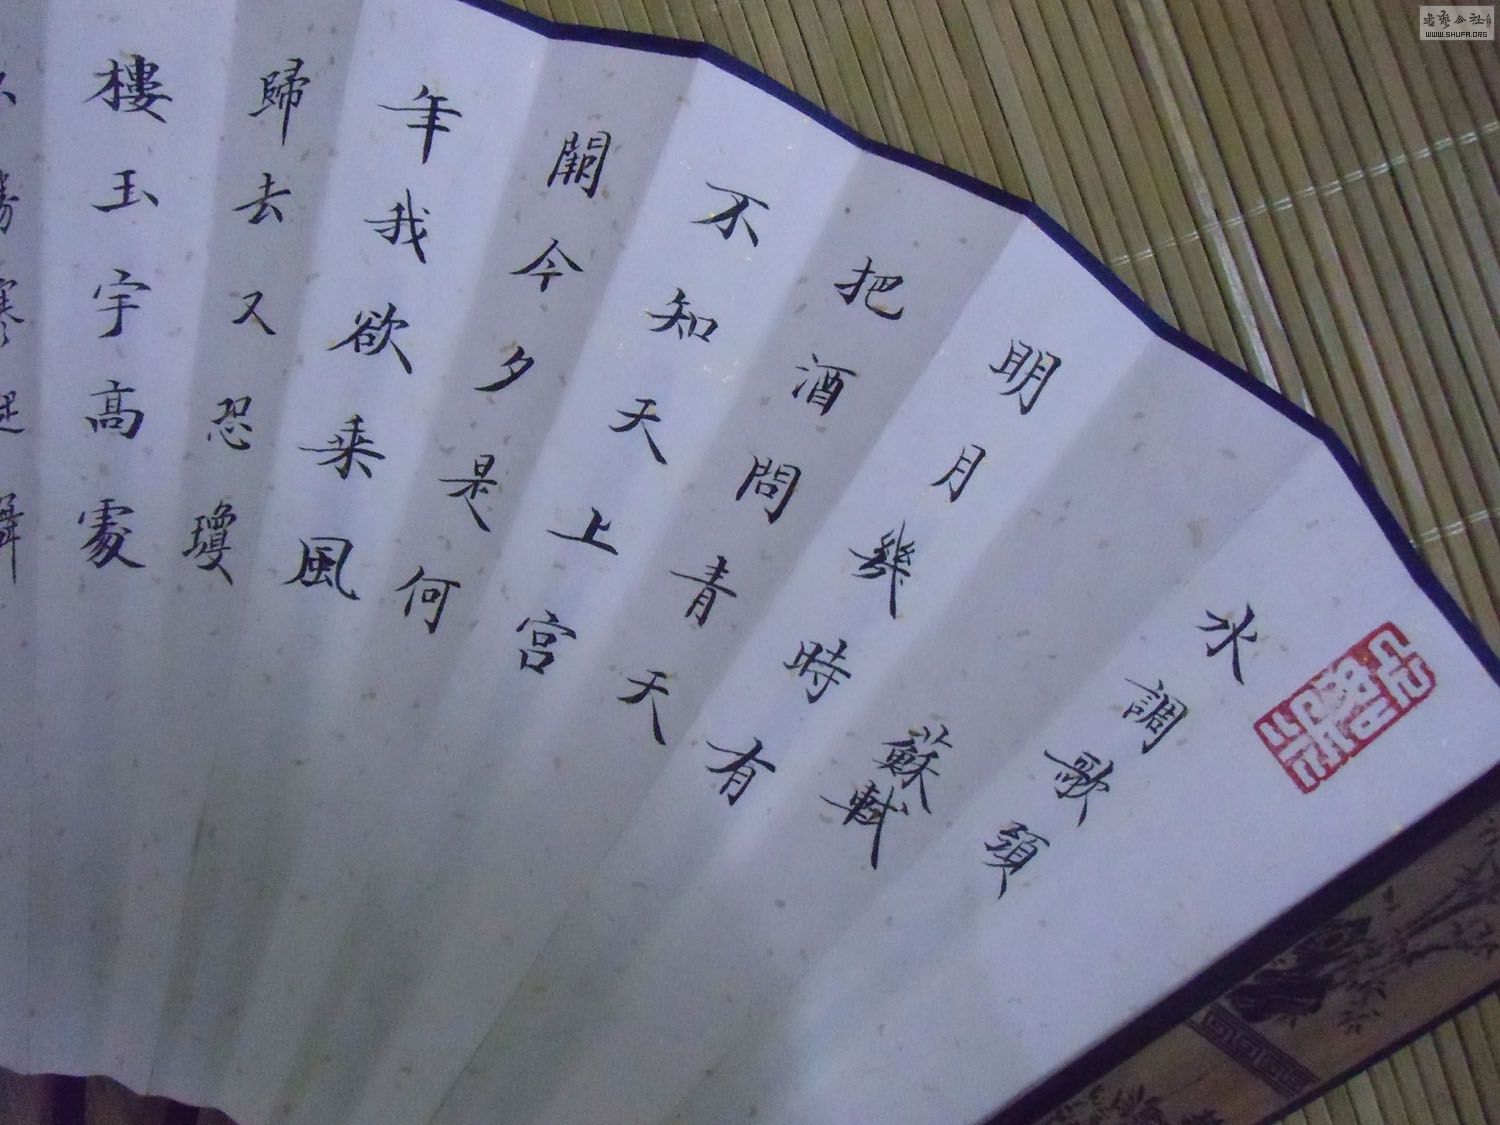 水調歌頭
蘇軾
明月幾時有
把酒問青天
不知天上宮
闕今夕是何
年我欲乘風
歸去又恐瓊
樓玉宇高處
不勝寒起舞
書藝公社
WWW.SHUFA.ORG